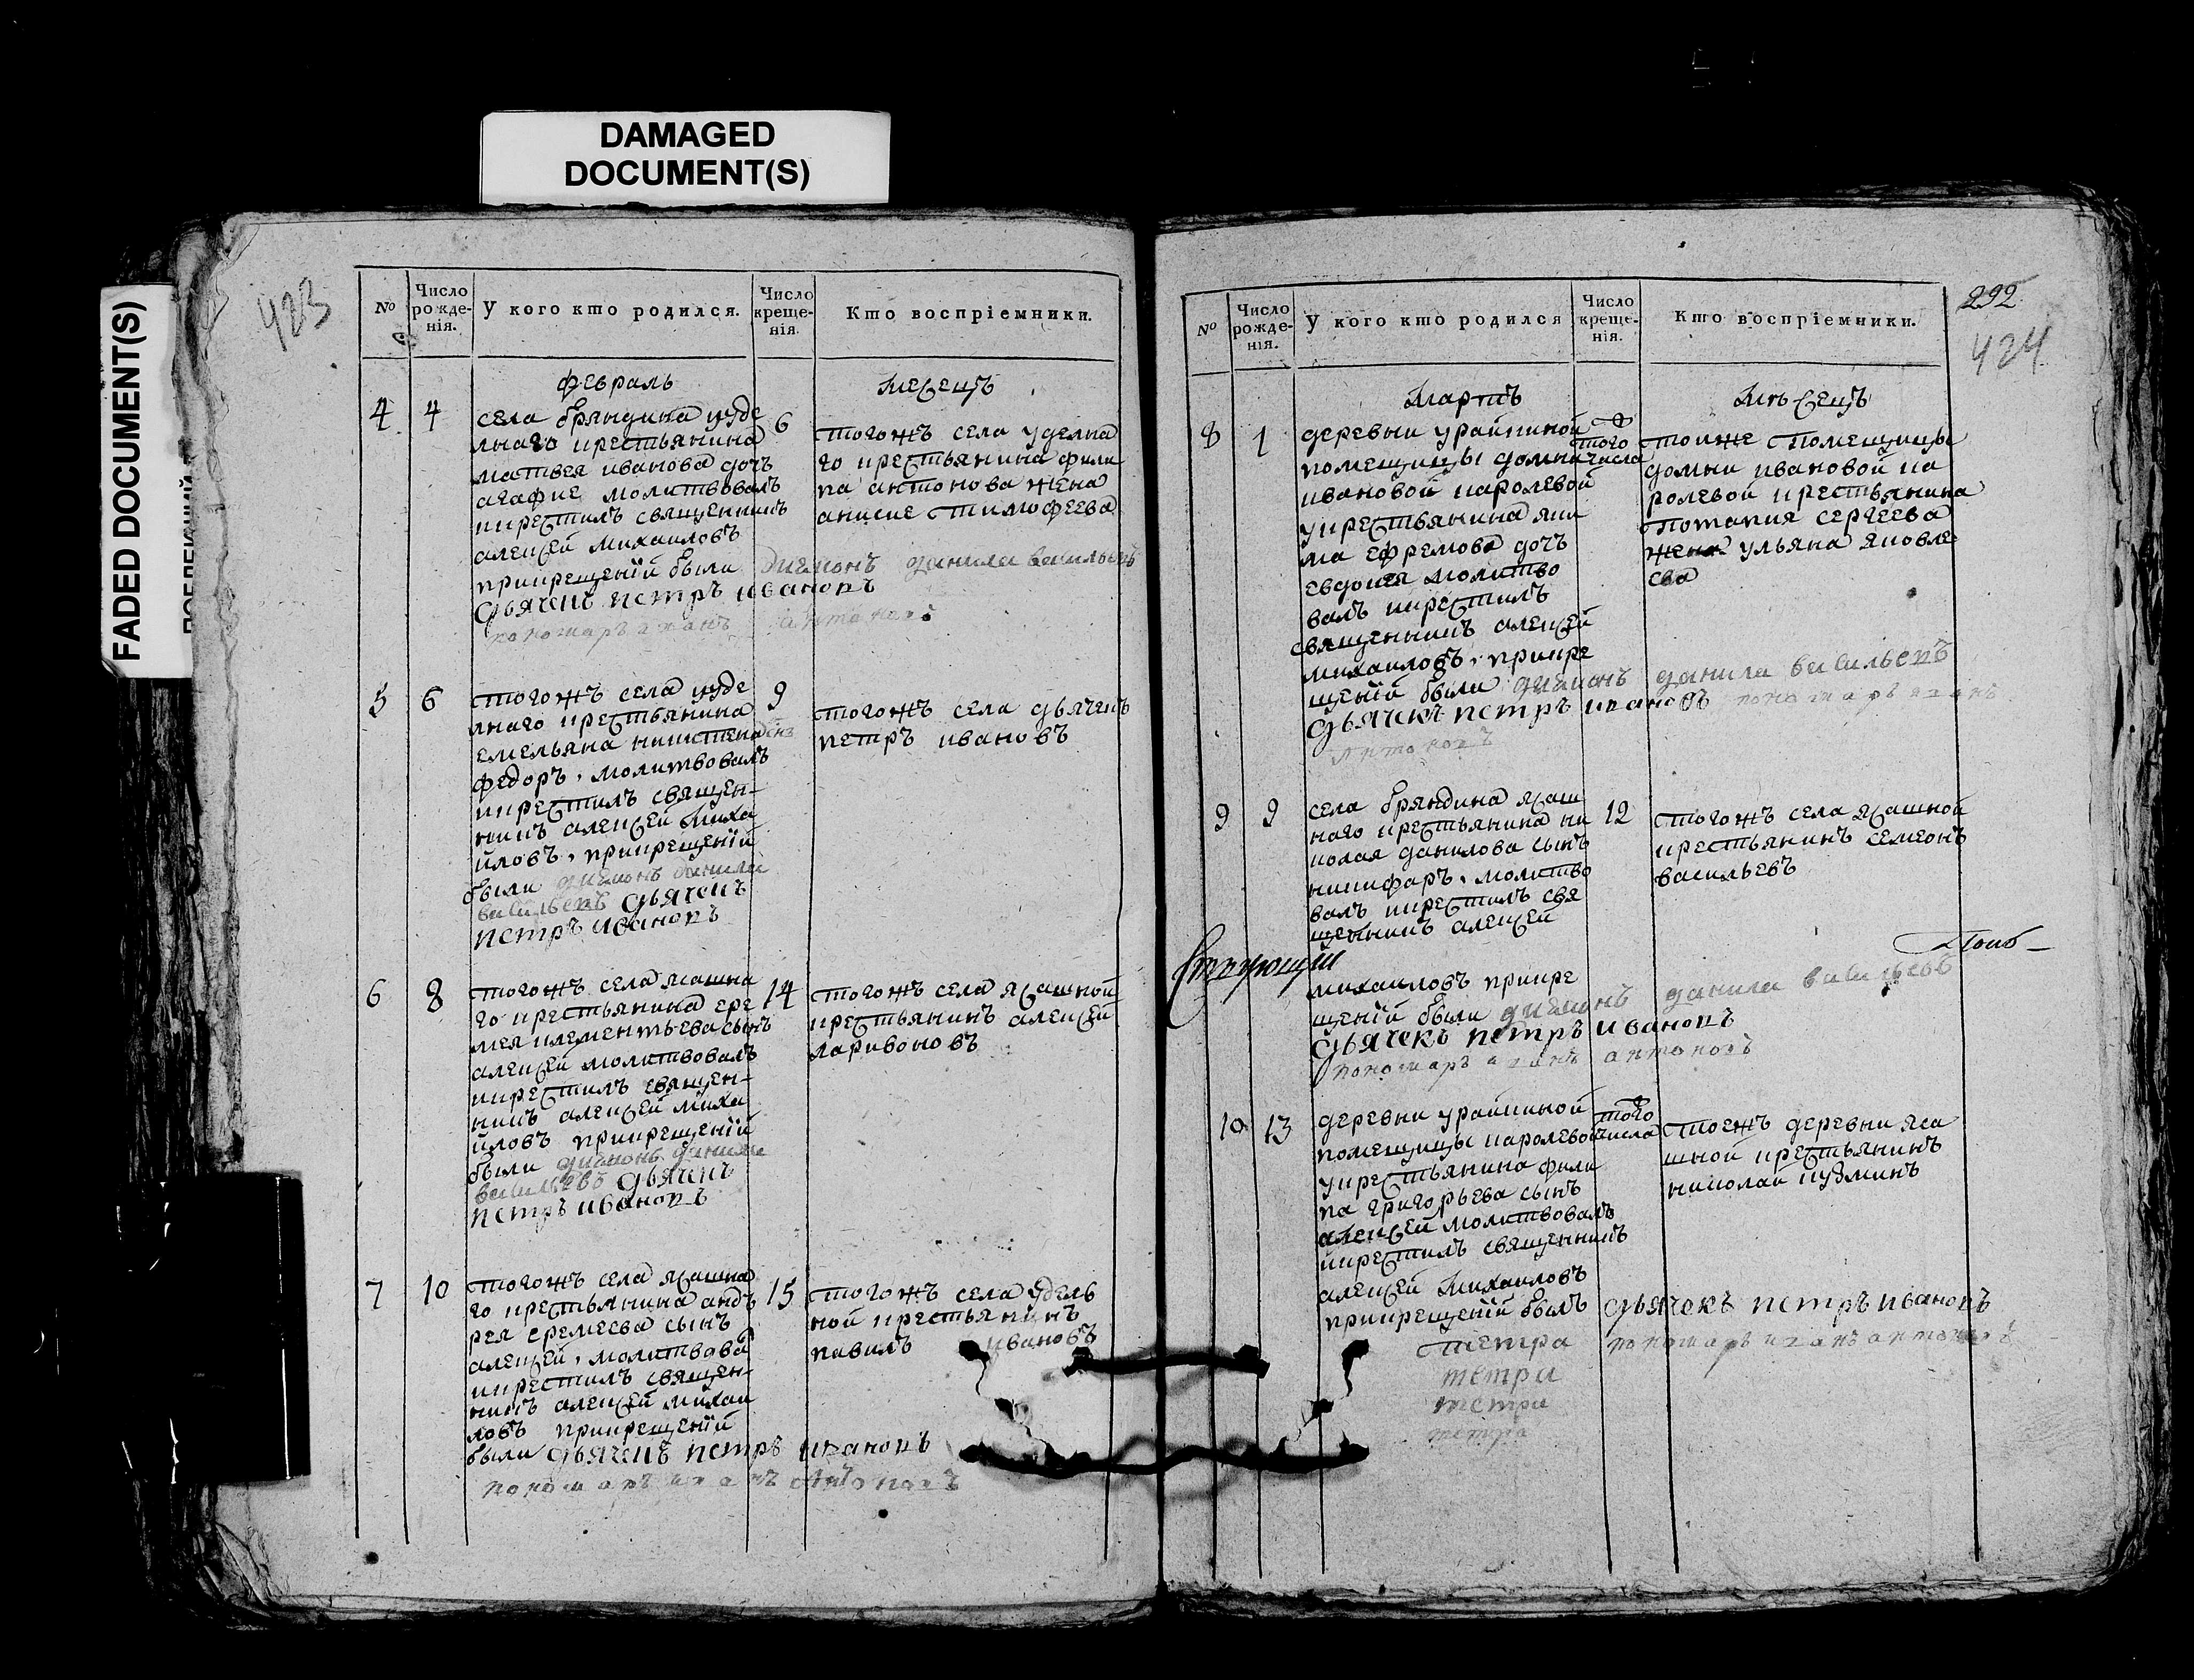 DAMAGED
DOCUMENT(S)
FADED DOCUMENT(S)
423
№
Число рожде-нія.
У кого кто родился.
Число креще-нія.
Кто воспріемники.
февраль
месецъ
4
4
села бряндина уде
лнаго крестьянина
матвея иванова дочь
агафие молитвовалъ
икрестилъ священникъ
алексей михаиловъ
прикрещенїи были диаконъ данила васильевъ
дьячекъ петръ ивановъ
пономарь иванъ антоновъ
6
тогожъ села уделна
го крестьянина фили
па антонова жена
анисие тимофеева
5
6
тогожъ села уде
лнаго крестьянина
емельяна никитина снъ
федоръ, молитвовалъ
икрестилъ священ-
никъ алексей миха
йловъ, прикрещенїи
были диаконъ данила
васильевъ дьячекъ
петръ ивановъ
9
тогожъ села дьячекъ
петръ ивановъ
6
8
тогожъ села ясашна
го крестьянина ере
мея клементьева сынъ
алексей молитвовалъ
икрестилъ священ-
никъ алексей миха
йловъ прикрещенїи
были диаконъ данила
васильевъ дьячекъ
петръ ивановъ
14
тогожъ села ясашной
крестьянинъ алексей
ларивоновъ
7
10
тогожъ села ясашна
го крестьянина андъ
рея еремеева сынъ
алексей, молитвова
икрестилъ священ-
никъ алексей михаи
ловъ прикрещенїи
были дьячекъ петръ ивановъ
пономарь иванъ антоновъ
15
тогожъ села удель
ной крестьянинъ
павилъ ивановъ
292
424
№
Число рожде-нія.
У кого кто родился
Число креще-нія.
Кто воспріемники.
мартъ
мѣсецъ
8
1
деревни урайкиной
помещицы домны
ивановой каролевой
укрестьянина яки
ма ефремова дочь
евдокея молитво
валъ икрестилъ
священникъ алексей
михаиловъ, прикре
щенїи были диаконъ данила васильевъ
дьячекъ петръ ивановъ пономарь иванъ
антоновъ
того числа
тоиже помещицы
домны ивановой ка
ролевой крестьянина
потапия сергеева
жена ульяна яковле
ева
9
9
села бряндина ясаш
наго крестьянина ни
колая данилова сынъ
никифаръ, молитво
валъ икрестилъ свя
щенникъ алексей
михаиловъ прикре
щенїи были диаконъ данила васильевъ
дьячекъ петръ ивановъ
пономарь иванъ антоновъ
12
тогожъ села ясашной
крестьянинъ семеонъ
васильевъ
10
13
деревни урайкиной
помещицы каролевой
укрестьянина фили
па григорьева сынъ
алексей молитвовалъ
икрестилъ священникъ
алексей михаиловъ
прикрещенїи былъ дьячекъ петръ ивановъ
пономарь иванъ антоновъ
того числа
тоежъ деревни яса
шной крестьянинъ
николай кузминъ
петра
петра
петра
петра